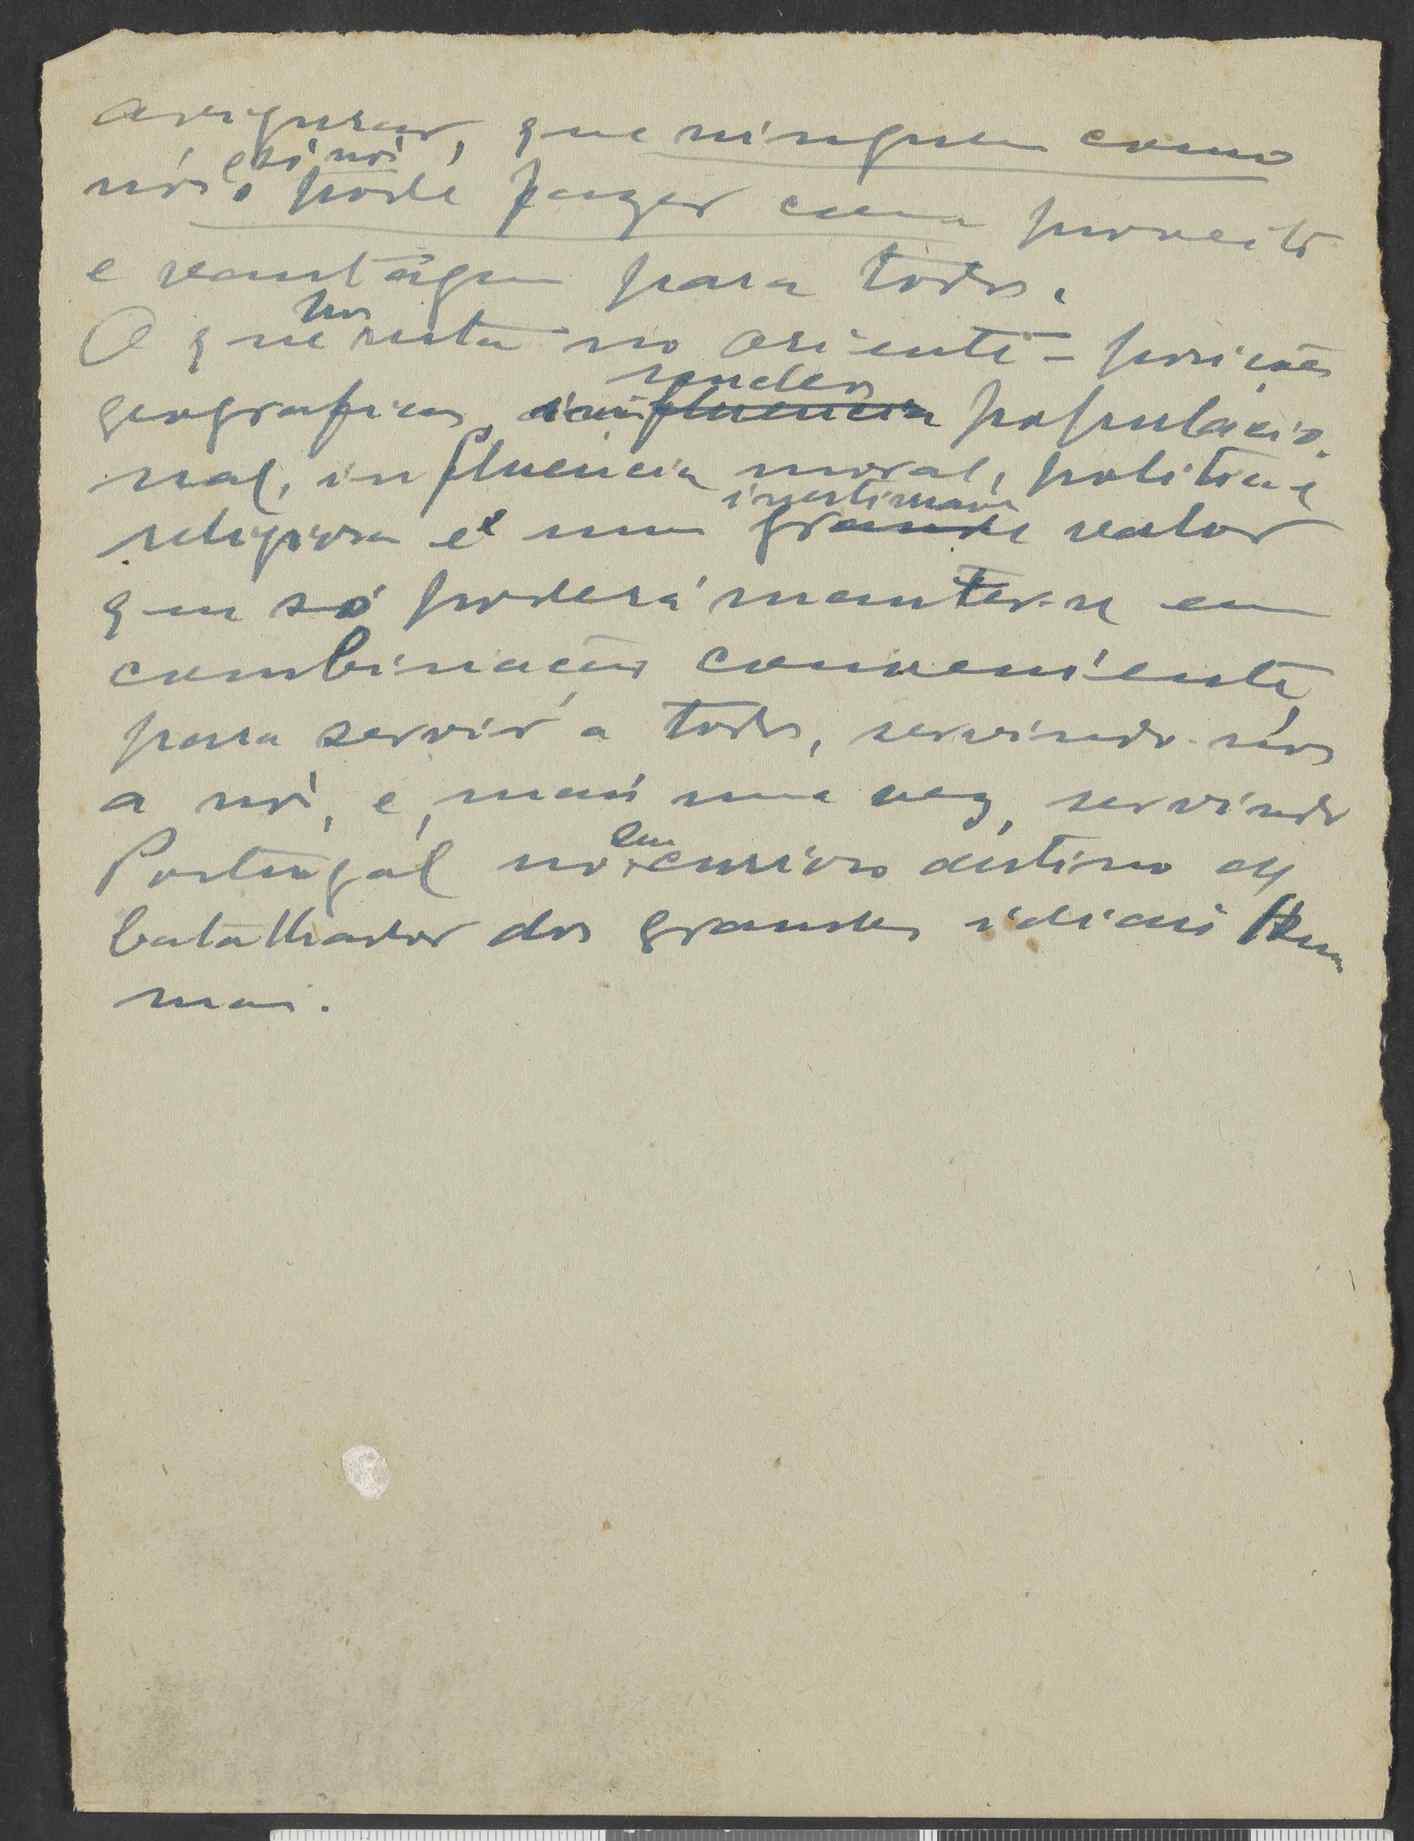 averiguar, que ninguem como
nós, e só nós, o pode fazer com proveito
e vantágem para todos.
O que nos resta no oriente – posições
geograficas, poder populácio-
nal, influencia moral, politica e
religiosa é um inestimavel valor
que só poderá manter-se em
combinação conveniente
para servir a todos, servindo-nos
a nós, e, mais uma vez, servindo
Portugál no seu curioso destino de
batalhador dos grandes ideais Hu-
manos.